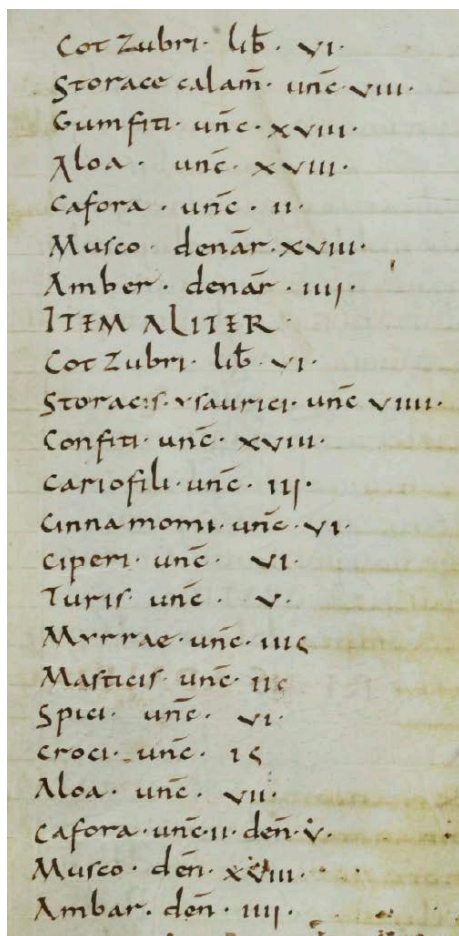 Cot Zubri· lib̄· VI·
Storace calam̄· unc̄· VIII·
Gumfiti· unc̄· XVIII·
Aloa· unc̄· XVIII·
Cafora· unc̄· II·
Musco· denār· XVIII·
Amber· denār· IIII·
ITEM ALITER·
Cot Zubri· lib̄· VI·
Storacis· ysaurici· unc̄ VIIII·
Confiti· unc̄· XVIII·
Cariofili· unc̄· III·
Cinnamomi· unc̄· VI·
Ciperi· unc̄· VI·
Turis· unc̄· V·
Myrrae· unc̄· IIIS
Masticis· unc̄· IIS
Spici· unc̄· VI·
Croci· unc̄· IS
Aloa· unc̄· VII·
Cafora· unc̄· II· den̄· V·
Musco· den̄· XVIII·
Ambar· den̄· IIII·